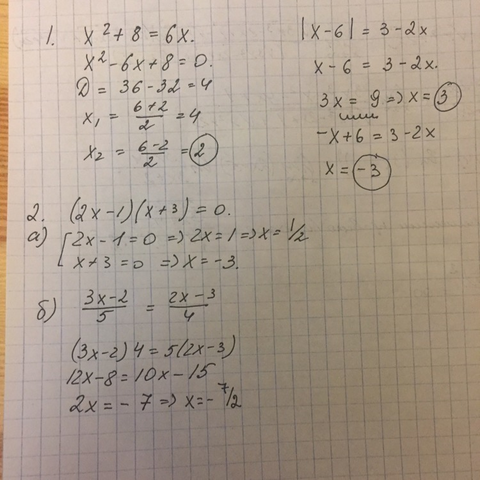 1. x² + 8 = 6x.
x² - 6x + 8 = 0.
D = 36 - 32 = 4
x₁ = (6+2)/2 = 4
x₂ = (6-2)/2 = 2
|x - 6| = 3 - 2x
x - 6 = 3 - 2x.
3x = 9 => x = 3
или
-x + 6 = 3 - 2x
x = -3
2. (2x - 1)(x + 3) = 0.
а) [2x - 1 = 0 => 2x = 1 => x = 1/2
x + 3 = 0 => x = -3.
б) (3x - 2)/5 = (2x - 3)/4
(3x - 2) 4 = 5(2x - 3)
12x - 8 = 10x - 15
2x = - 7 => x = - 7/2